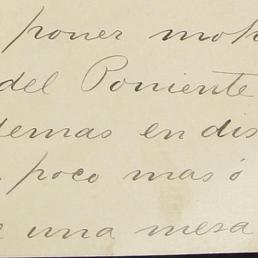 poner
del Poniente
demas en dis
poco mas ó
una mesa